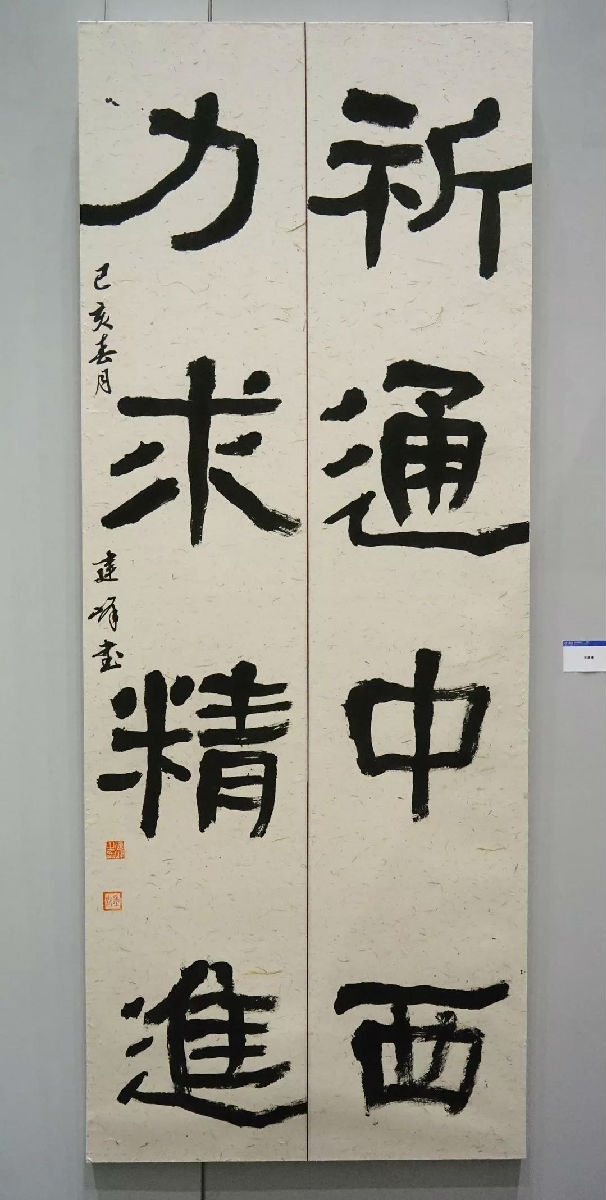 祈通中西
力求精進
己亥春月 建峰書